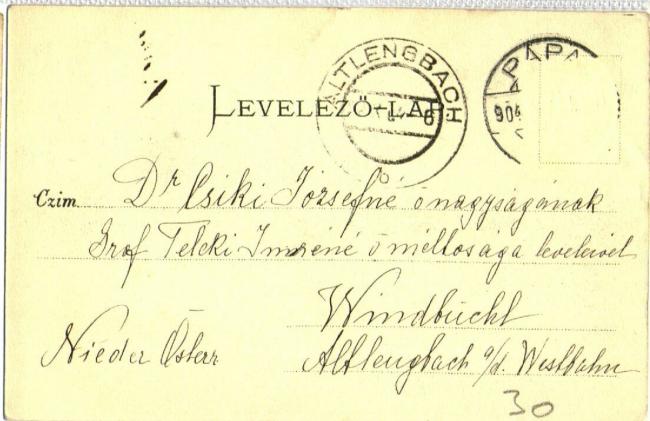 ALTLENGBACH
PÁPA
904
6
LEVELEZŐ-LAP
Czim Dr Csiki Józsefné ő nagyságának
Gróf Teleki Imréné ő méltósága leveleivel
Windbüchl
Nieder Österr
Altlengbach a/d. Westbahn
30